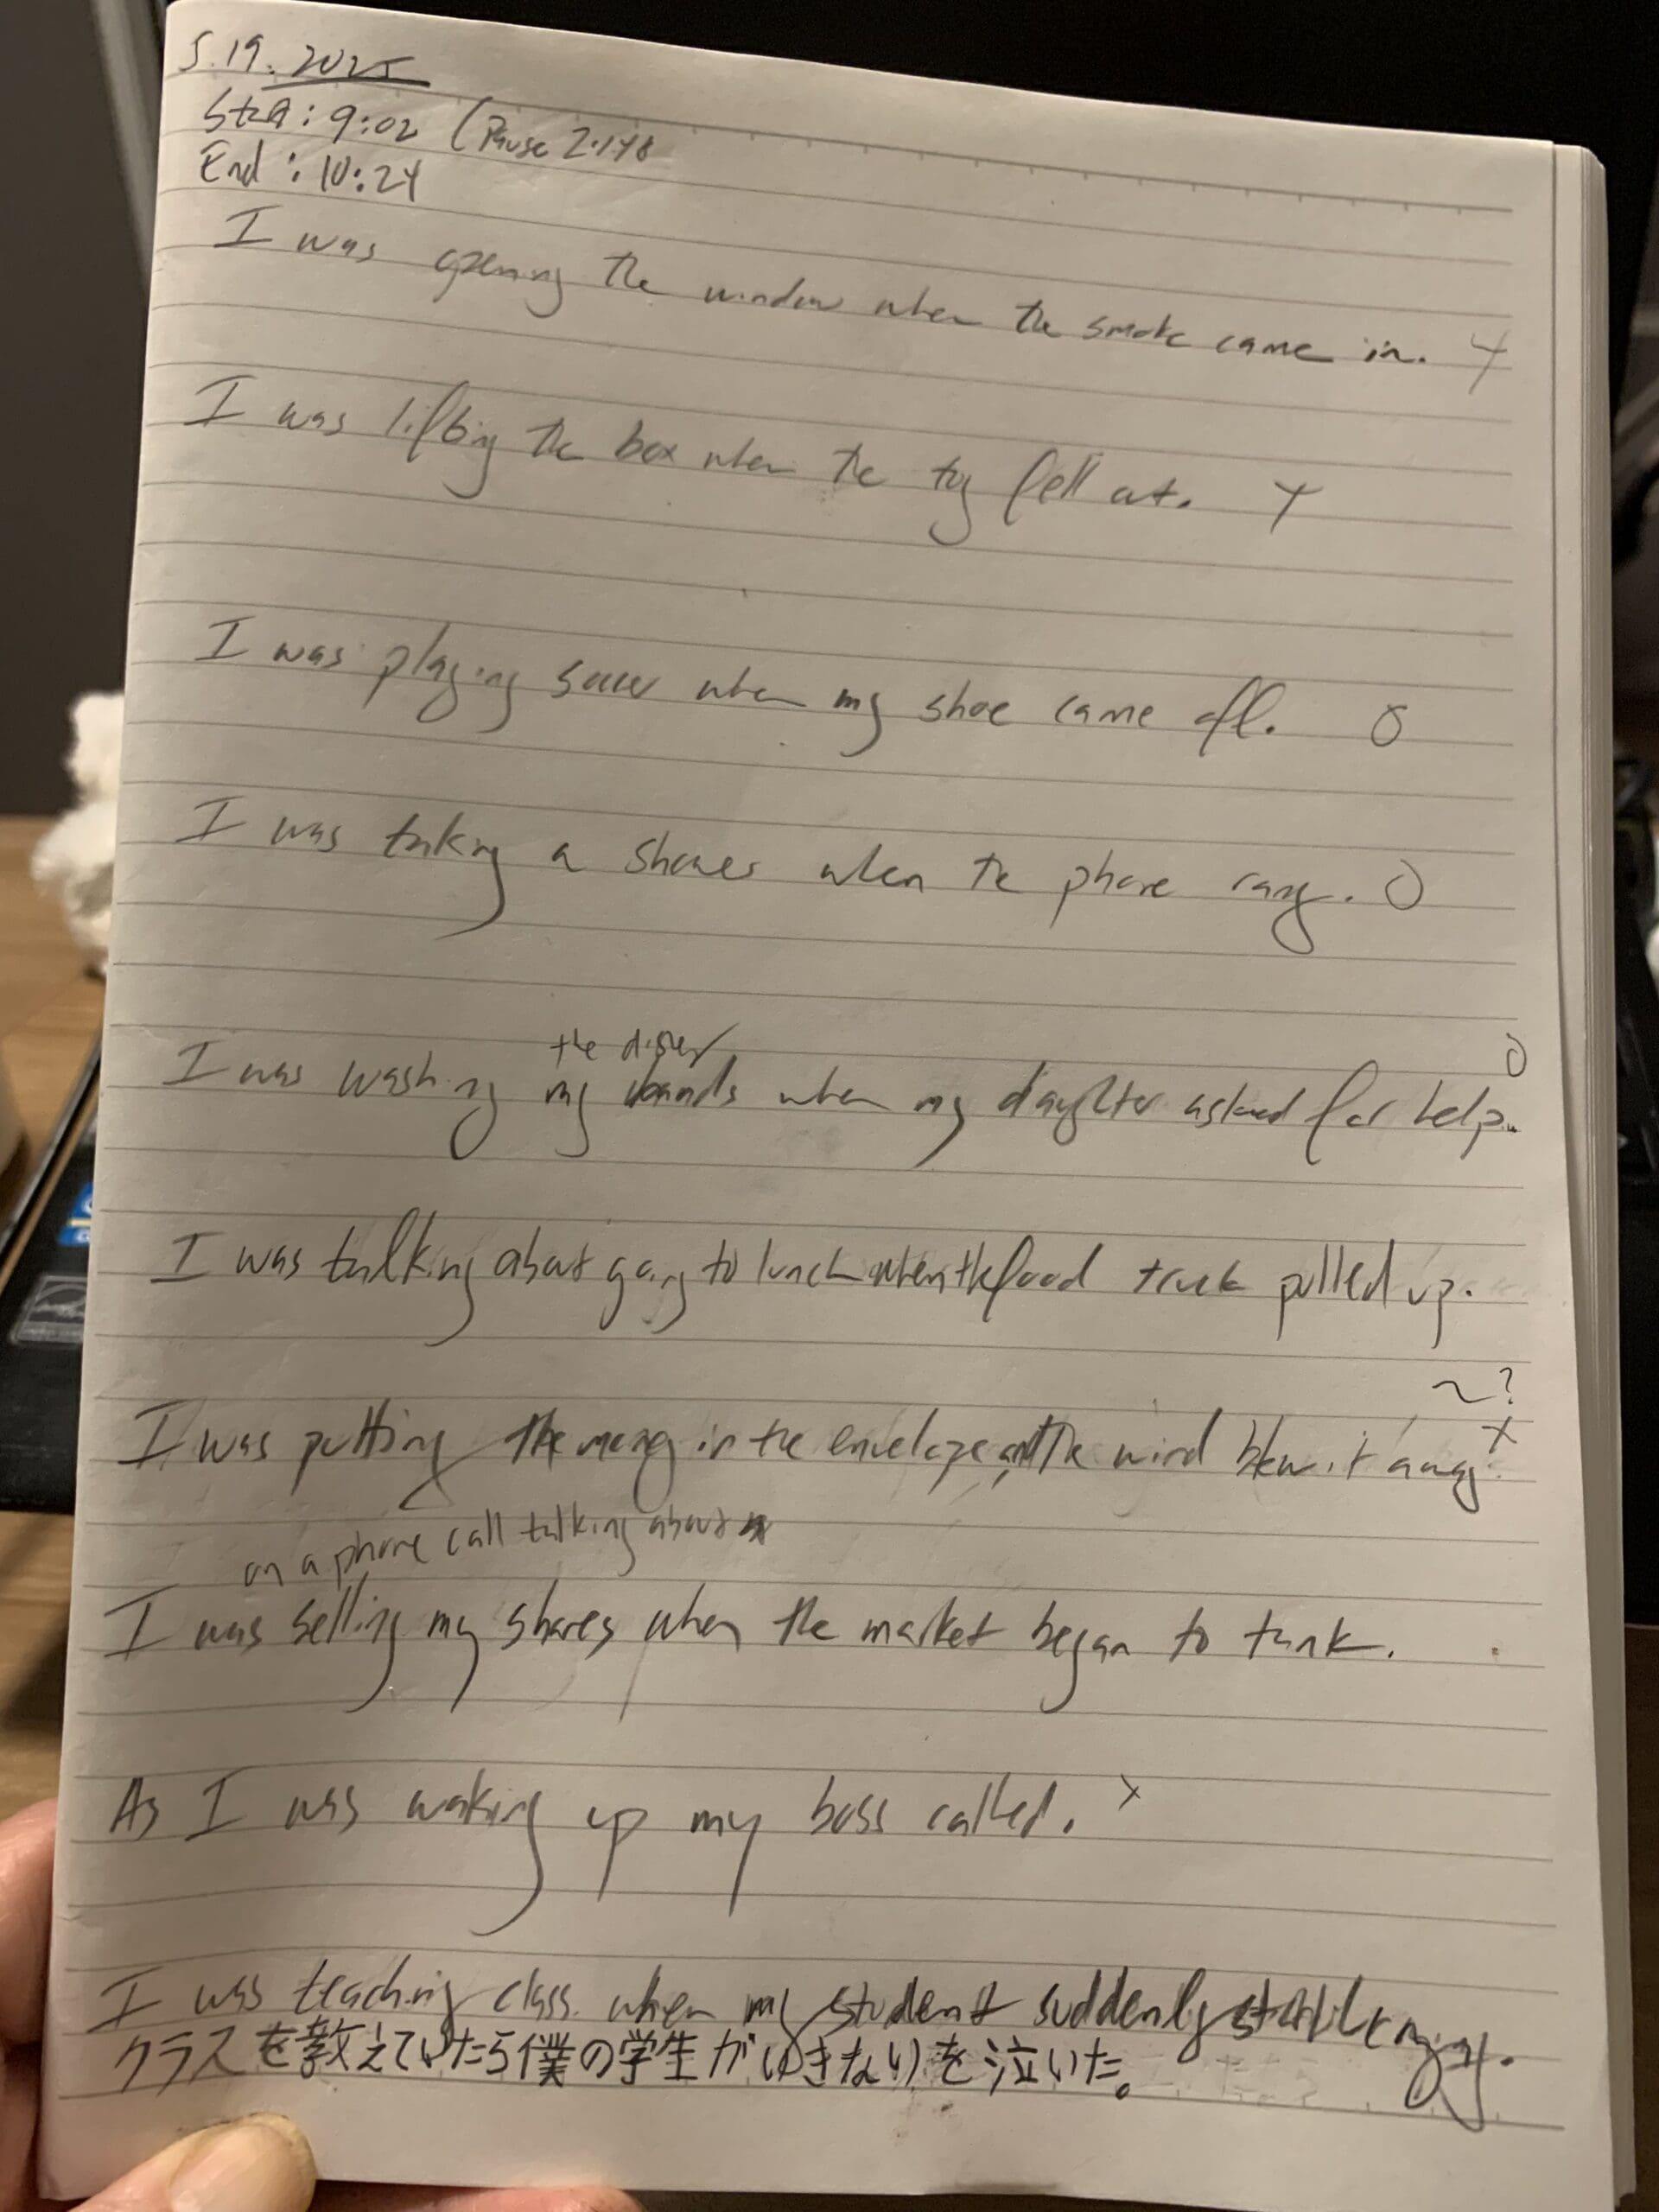 5.19.2025
Start: 9:02 (Pause
End: 10:24
I was opening the window when the smoke came in. X
I was lifting the box when the toy fell out. X
I was playing soccer when my shoe came off. O
I was taking a shower when the phone rang. O
the dishes
O
I was washing my hands when my daughter asked for help.
I was talking about going to lunch when the food truck pulled up.
~?
X
I was putting the money in the envelope and the wind blew it away.
on a phone call talking about
I was selling my shares when the market began to tank.
As I was waking up my boss called. X
I was teaching class when my student suddenly started crying.
クラスを教えていたら僕の学生がいきなりを泣いた。